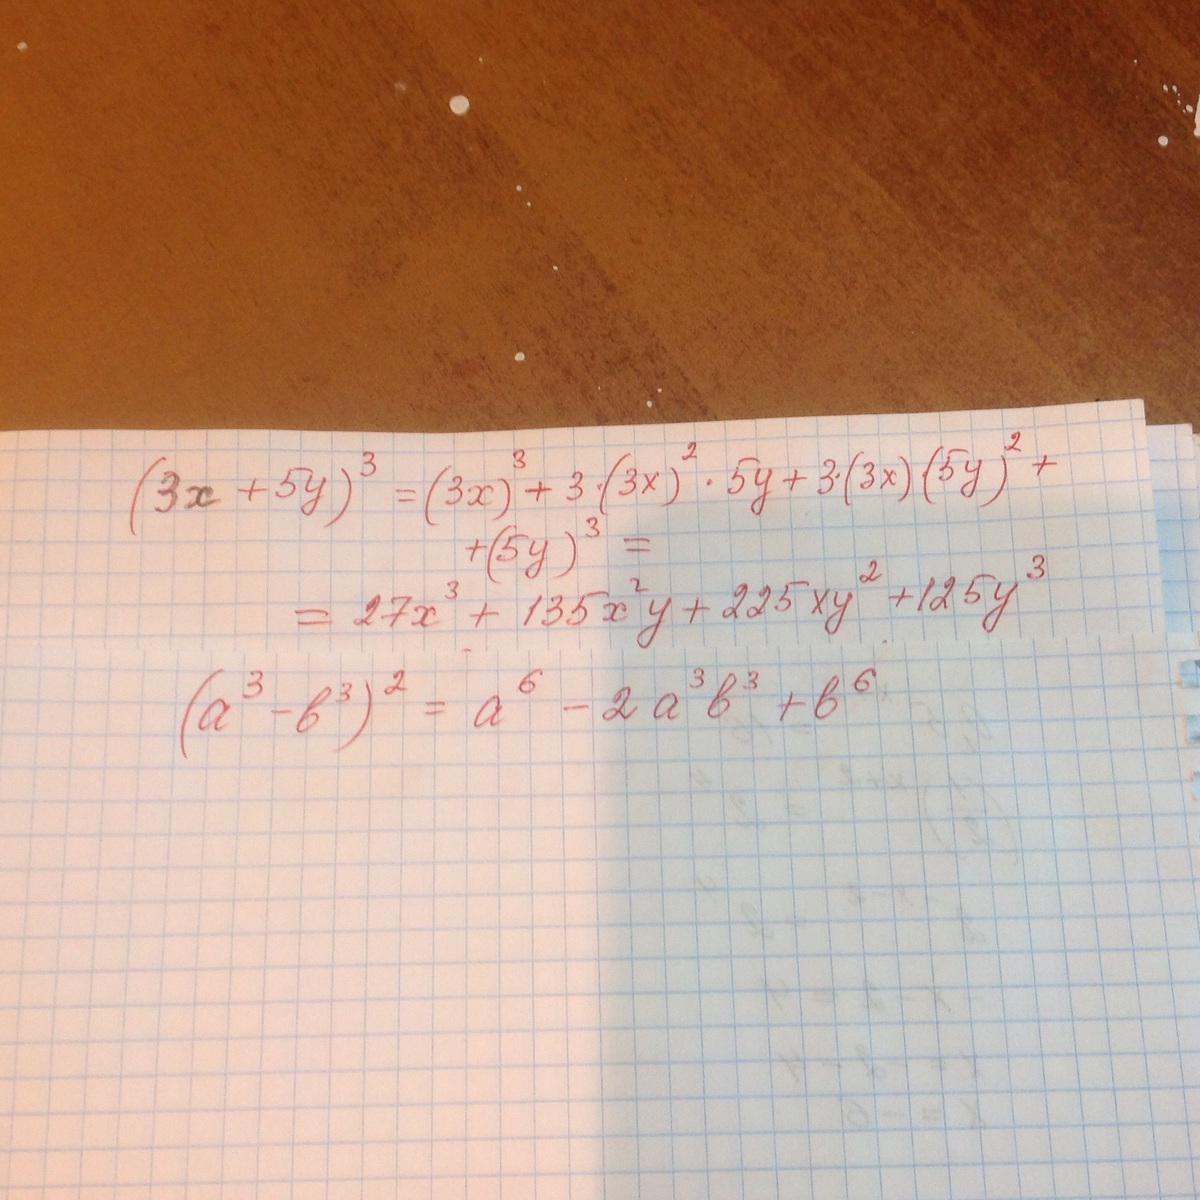 (3x + 5y)³ = (3x)³ + 3·(3x)² · 5y + 3·(3x)(5y)² +
+(5y)³ =
= 27x³ + 135x²y + 225xy² + 125y³
(a³ - b³)² = a⁶ - 2a³b³ + b⁶